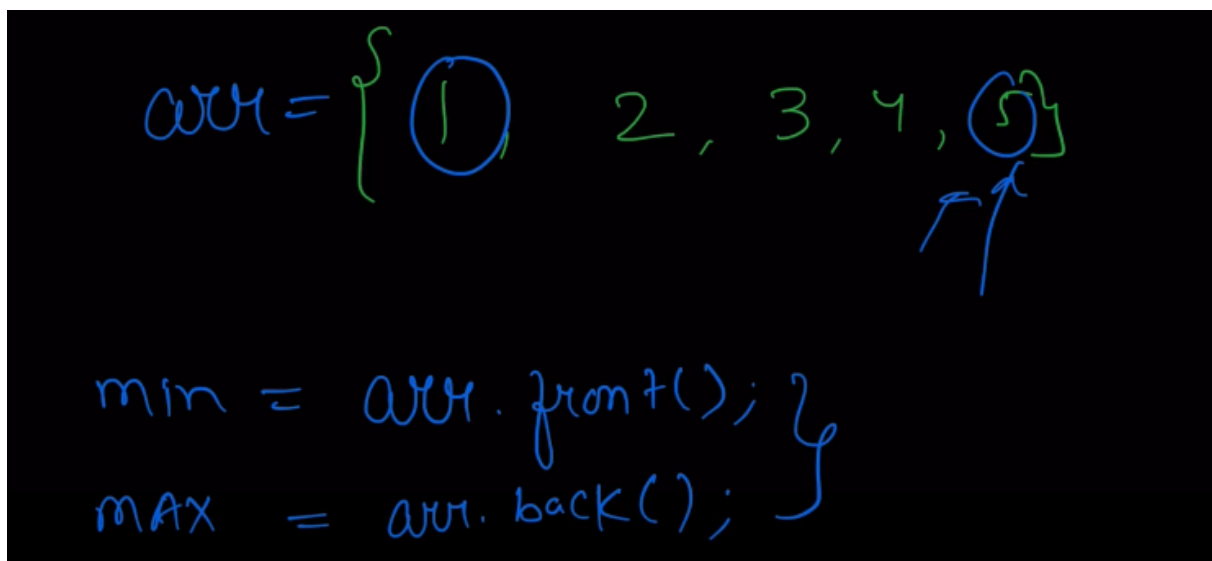 arr = { 1, 2, 3, 4, 5 }
min = arr.front();
MAX = arr.back();